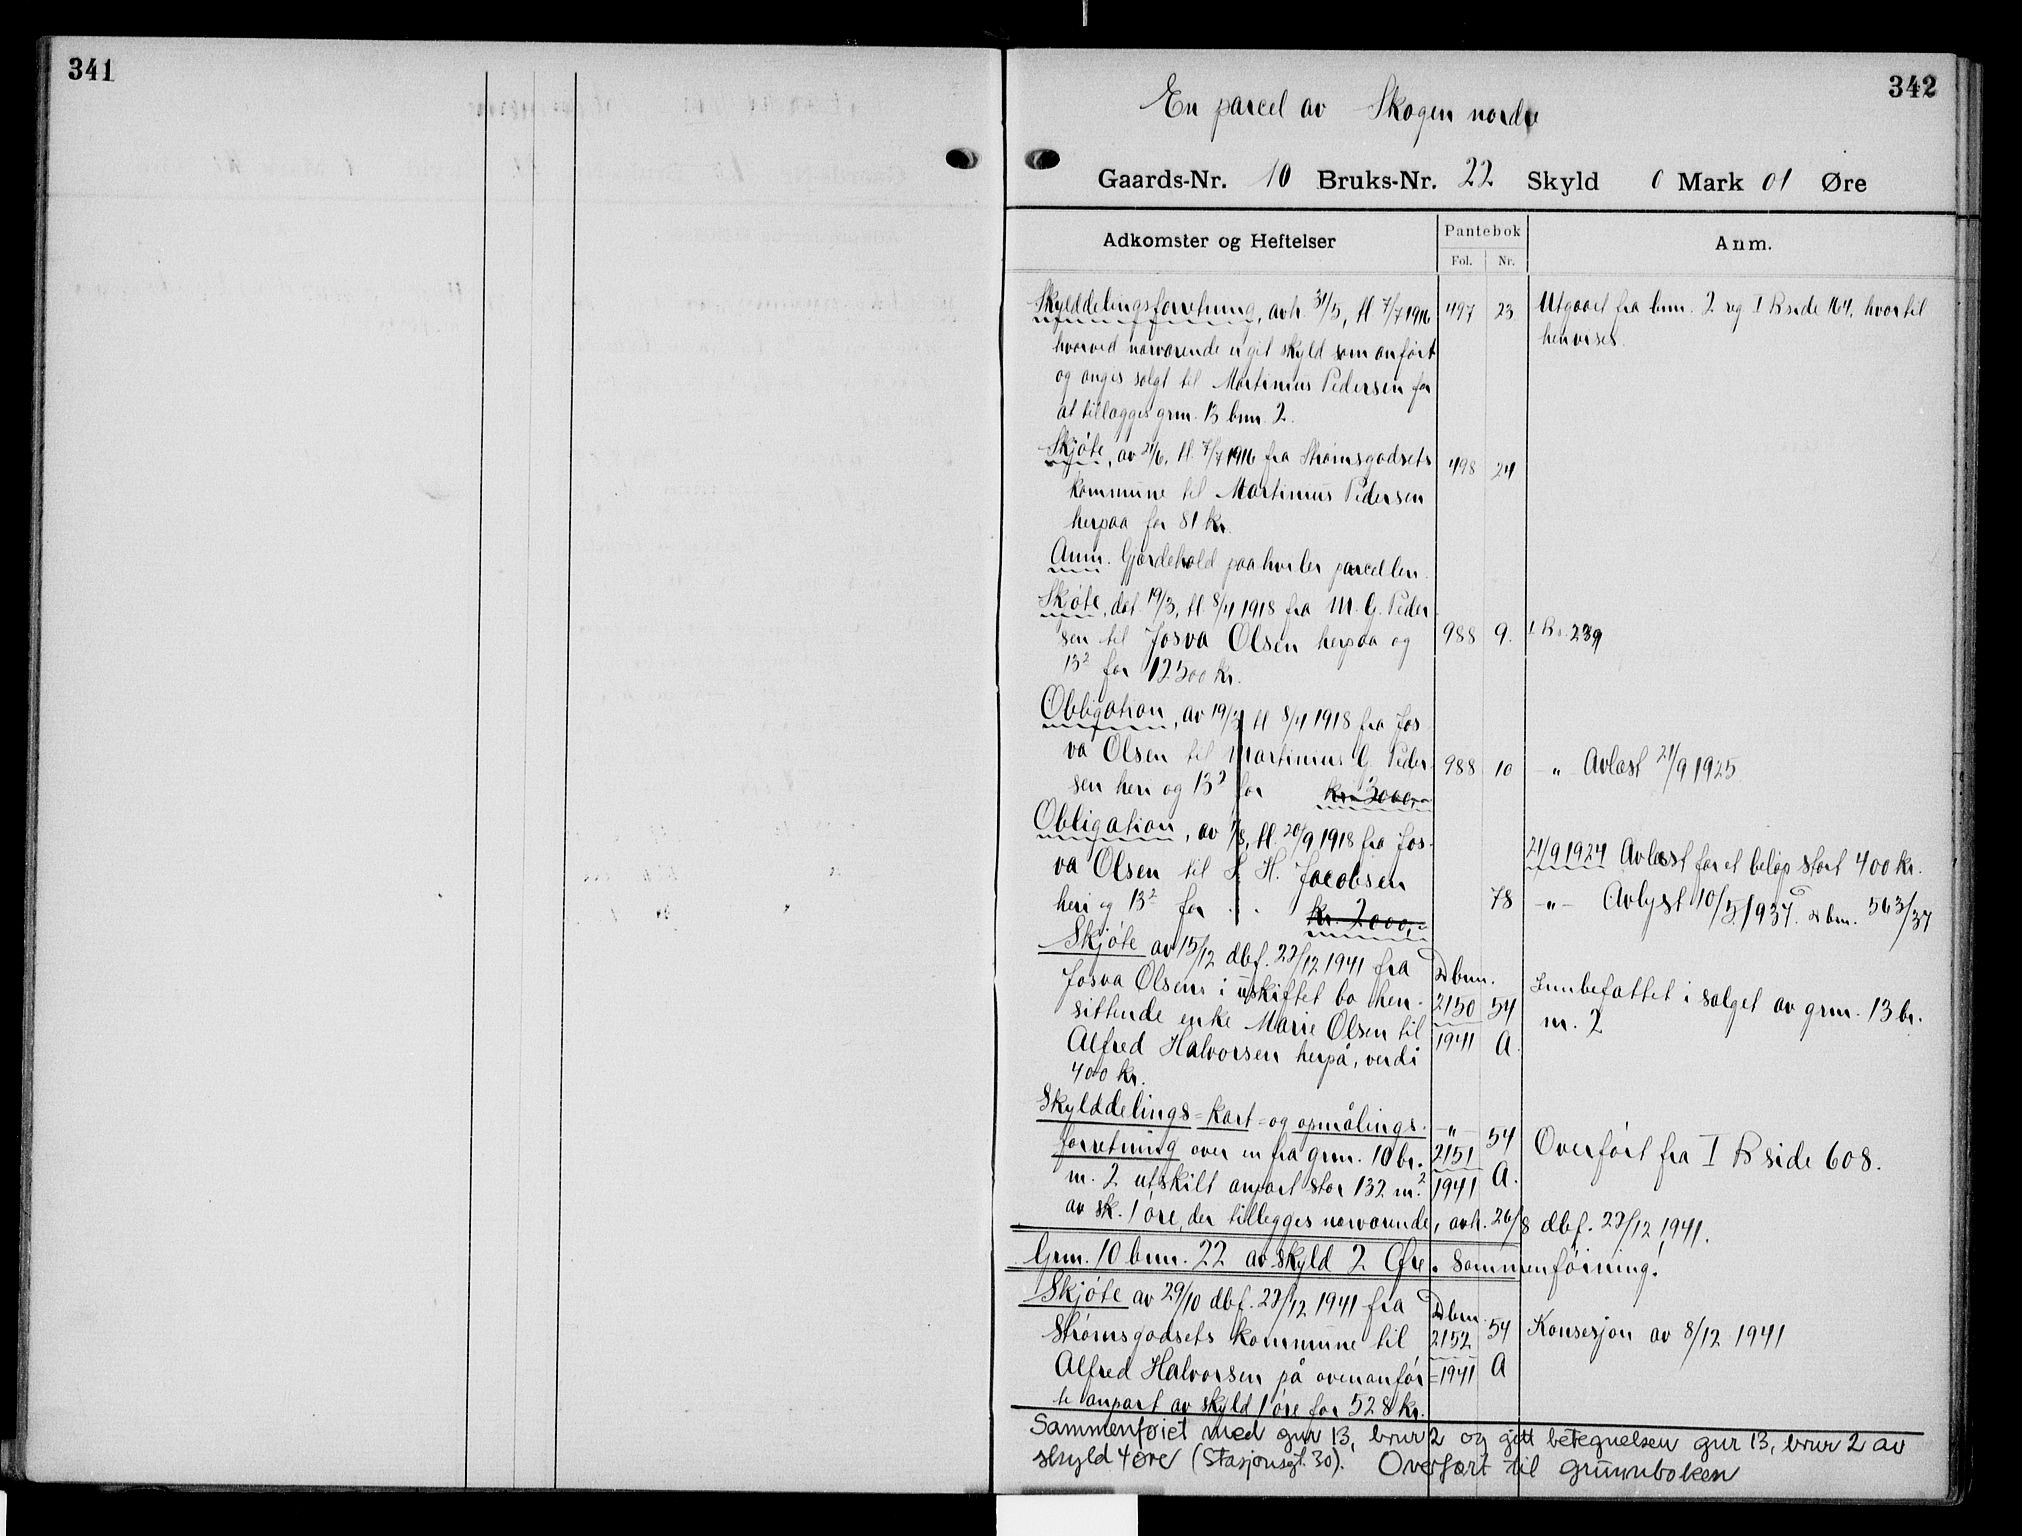 341
342
En parcel av Skogen nordre
Gaards-Nr. 10 Bruks-Nr. 22 Skyld 0 Mark 01 Øre
Adkomster og Heftelser
Pantebok
Fol. Nr.
Anm.
Skylddelingsforretning, avh. 31/5, tl. 7/7 1916 497 23 Utgaaet fra bnr. 2 reg I B side 164, hvortil
hvorved nærværende er git skyld som anført henvises.
og anges solgt til Martinius Pedersen for
at tillægges grn. 13 bnr. 2.
Skjøte, av 21/6, tl. 7/7 1916 fra Strømsgodsets 498 24
kommune til Martinius Pedersen
herpaa for 81 kr.
Anm. Gjærdehold paahviler parcellen.
Skjøte, dat 19/3, tl. 8/4 1918 fra M. G. Peder
sen til Josva Olsen herpaa og 988 9. I B s. 239
13² for 12500 kr.
Obligation, av 19/3 tl 8/4 1918 fra Jos
va Olsen til Martinius G. Peder 988 10 — „ Avlæst 21/9 1925
sen heri og 13² for kr. 3000,-
Obligation, av 7/8, tl. 20/9 1918 fra Jos- 21/9 1924 Avlæst for et beløp stort 400 kr.
va Olsen til S. H. Jacobsen
heri og 13² for . . kr 2000,- 78 —„— Avlyst 10/5 1937. Dbnr. 563/37
Skjøte av 15/12 dbf. 22/12 1941 fra Dbnr.
Josva Olsens i uskiftet bo hen- 2150 54 Innbefattet i salget av grn. 13 br.
sittende enke Marie Olsen til 1941 A. nr. 2
Alfred Halvorsen herpå, verdi
400 kr.
Skylddelings- kart- og opmålings- —„— 54
forretning over en fra grn. 10 br. 2151 A. Overført fra I B side 608.
nr. 2 utskilt anpart stor 132 m.² 1941
av sk. 1 øre, der tillegges nærværende, avh. 26/8 dbf. 22/12 1941.
Grn. 10 bnr. 22 av skyld 2 Øre. Sammenføining.
Skjøte av 29/10 dbf. 22/12 1941 fra Dbnr.
Strømsgodsets kommune til 2152 54 Konsesjon av 8/12 1941
Alfred Halvorsen på ovenanfør =1941 A
te anpart av skyld 1 øre for 528 kr.
Sammenføiet med gnr 13, bnr 2 og gitt betegnelsen gnr 13, bnr 2 av
skyld 4 øre (Stasjonsgt. 30). Overført til grunnboken